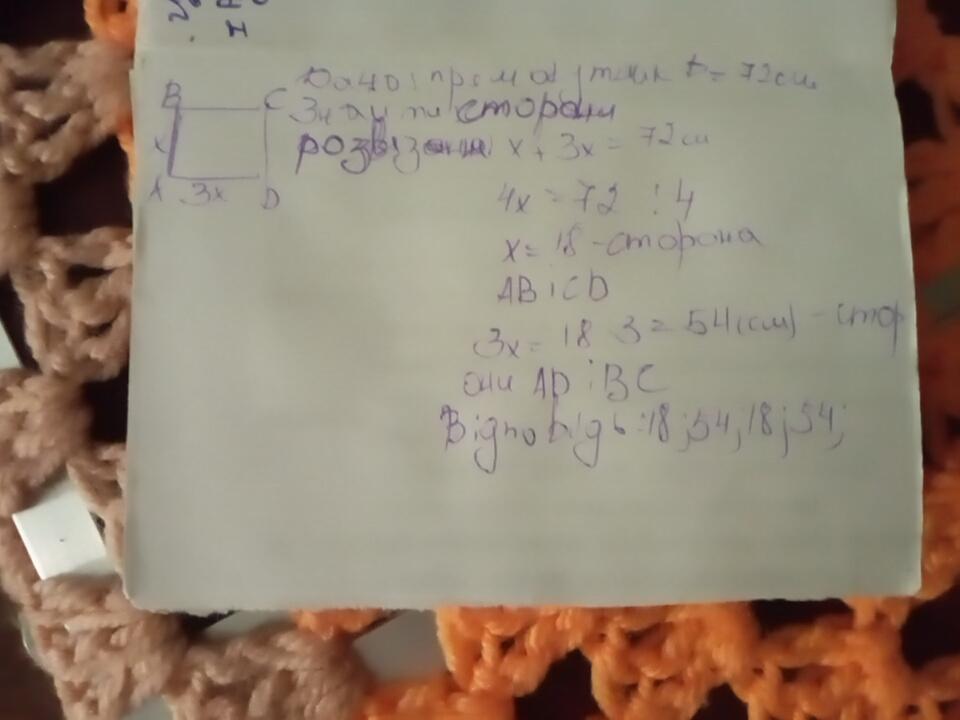 B C
x
A 3x D
Дано: прямокутник P = 72 см
Знайти сторони
розвязання x + 3x = 72 см
4x = 72 : 4
x = 18 - сторона
AB i CD
3x = 18 3 = 54 (см) - стор
они AD i BC
Відповідь: 18; 54, 18; 54;